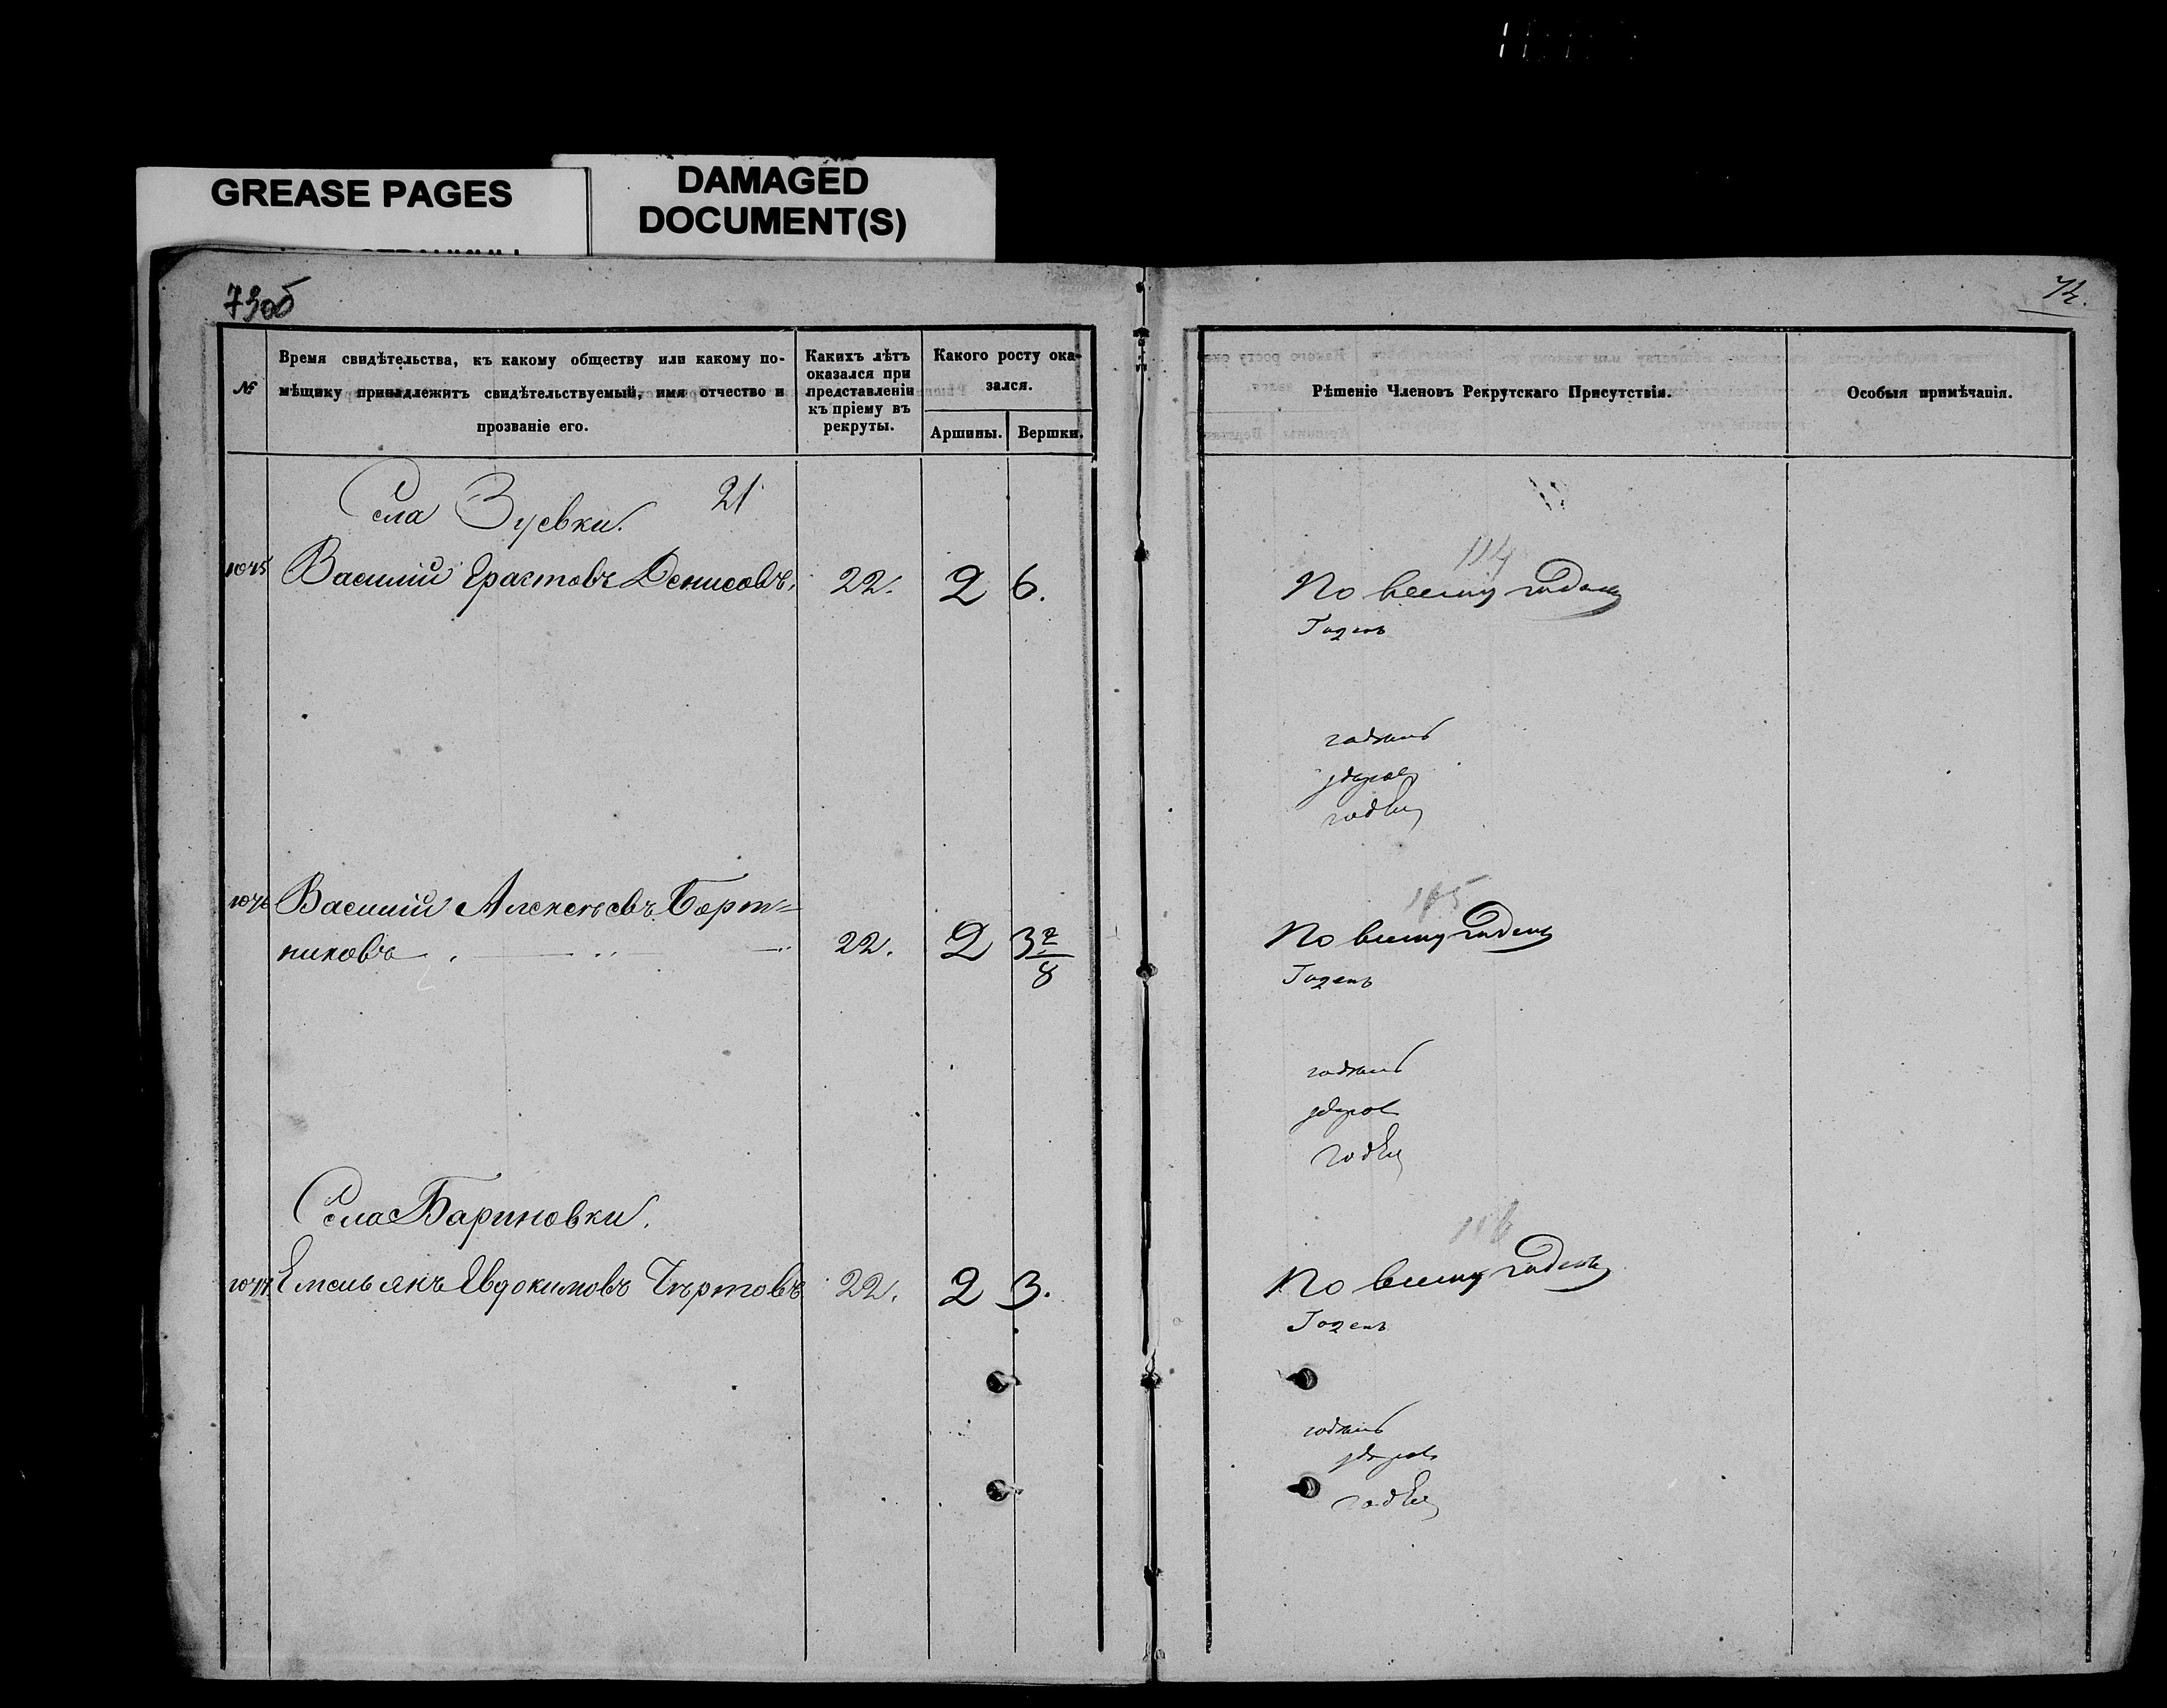 GREASE PAGES
DAMAGED
DOCUMENT(S)
73об
74.
№
Время свидѣтельства, къ какому обществу или какому по-
мѣщику принадлежитъ свидѣтельствуемый, имя отчество и
прозваніе его.
Какихъ лѣтъ
оказался при
представленіи
къ пріему въ
рекруты.
Какого росту ока-
зался.
Аршины.
Вершки.
Рѣшеніе Членовъ Рекрутскаго Присутствія.
Особыя примѣчанія.
21
Села Зуевки.
1045
Василій Ерастовъ Денисовъ.
22.
2
6.
114
По всему годенъ
Годенъ
годенъ
здоровъ
годенъ
1046
Василій Алексѣевъ Борт=
никовъ
22.
2
3 7/8
115
По всему годенъ
Годенъ
годенъ
здоровъ
годенъ
Села Бариновки.
1047
Емельянъ Евдокимовъ Чертовъ
22.
2
3.
116
По всему годенъ
Годенъ
годенъ
здоровъ
годенъ